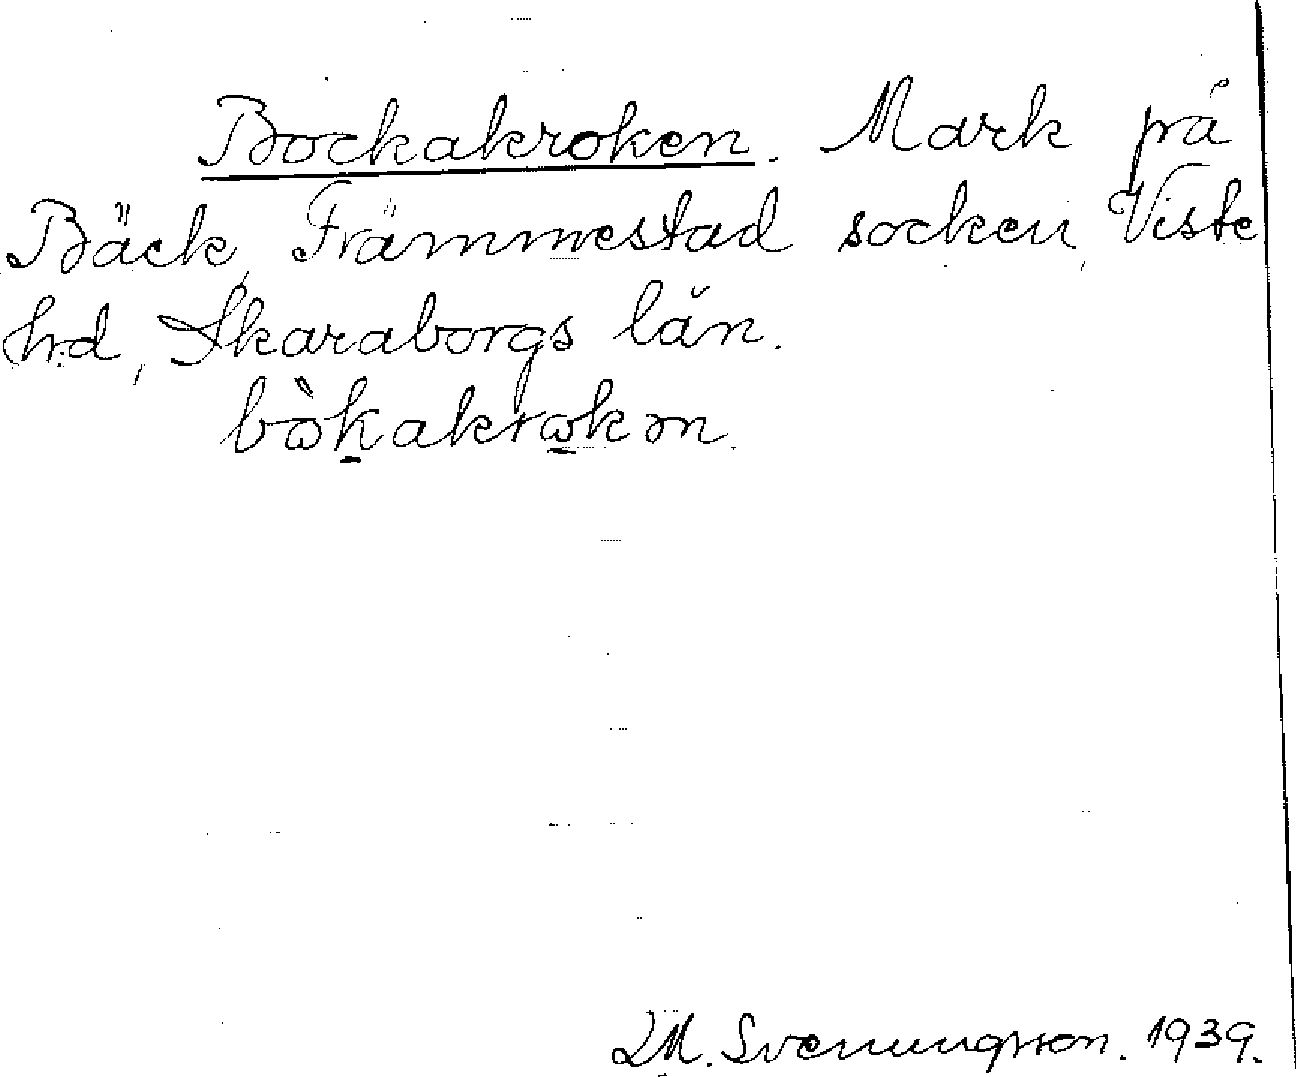 Bockakroken. Mark på
Bäck, Främmestad socken, Viste
hd, Skaraborgs län.
M. Svenungsson. 1939.